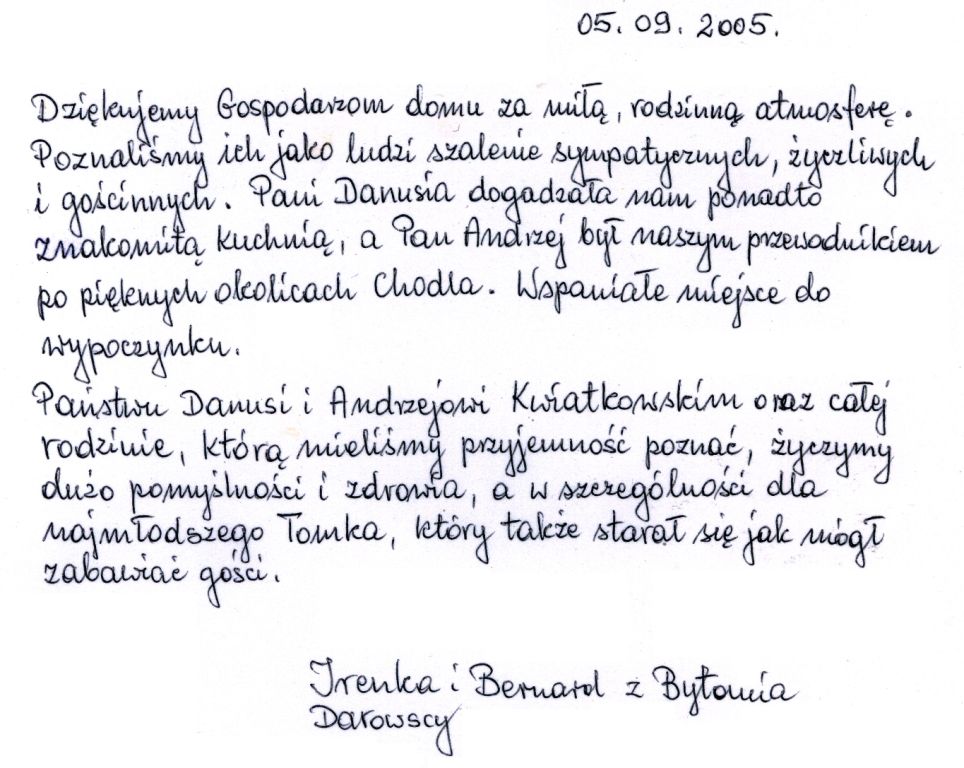 05.09.2005.
Dziękujemy Gospodarzom domu za miłą, rodzinną atmosferę.
Poznaliśmy ich jako ludzi szalenie sympatycznych, życzliwych
i gościnnych. Pani Danusia dogadzała nam ponadto
znakomitą kuchnią, a Pan Andrzej był naszym przewodnikiem
po pięknych okolicach Chodla. Wspaniałe miejsce do
wypoczynku.
Państwu Danusi i Andrzejowi Kwiatkowskim oraz całej
rodzinie, którą mieliśmy przyjemność poznać, życzymy
dużo pomyślności i zdrowia, a w szczególności dla
najmłodszego Tomka, który także starał się jak mógł
zabawiać gości.
Irenka i Bernard z Bytomia
Darowscy